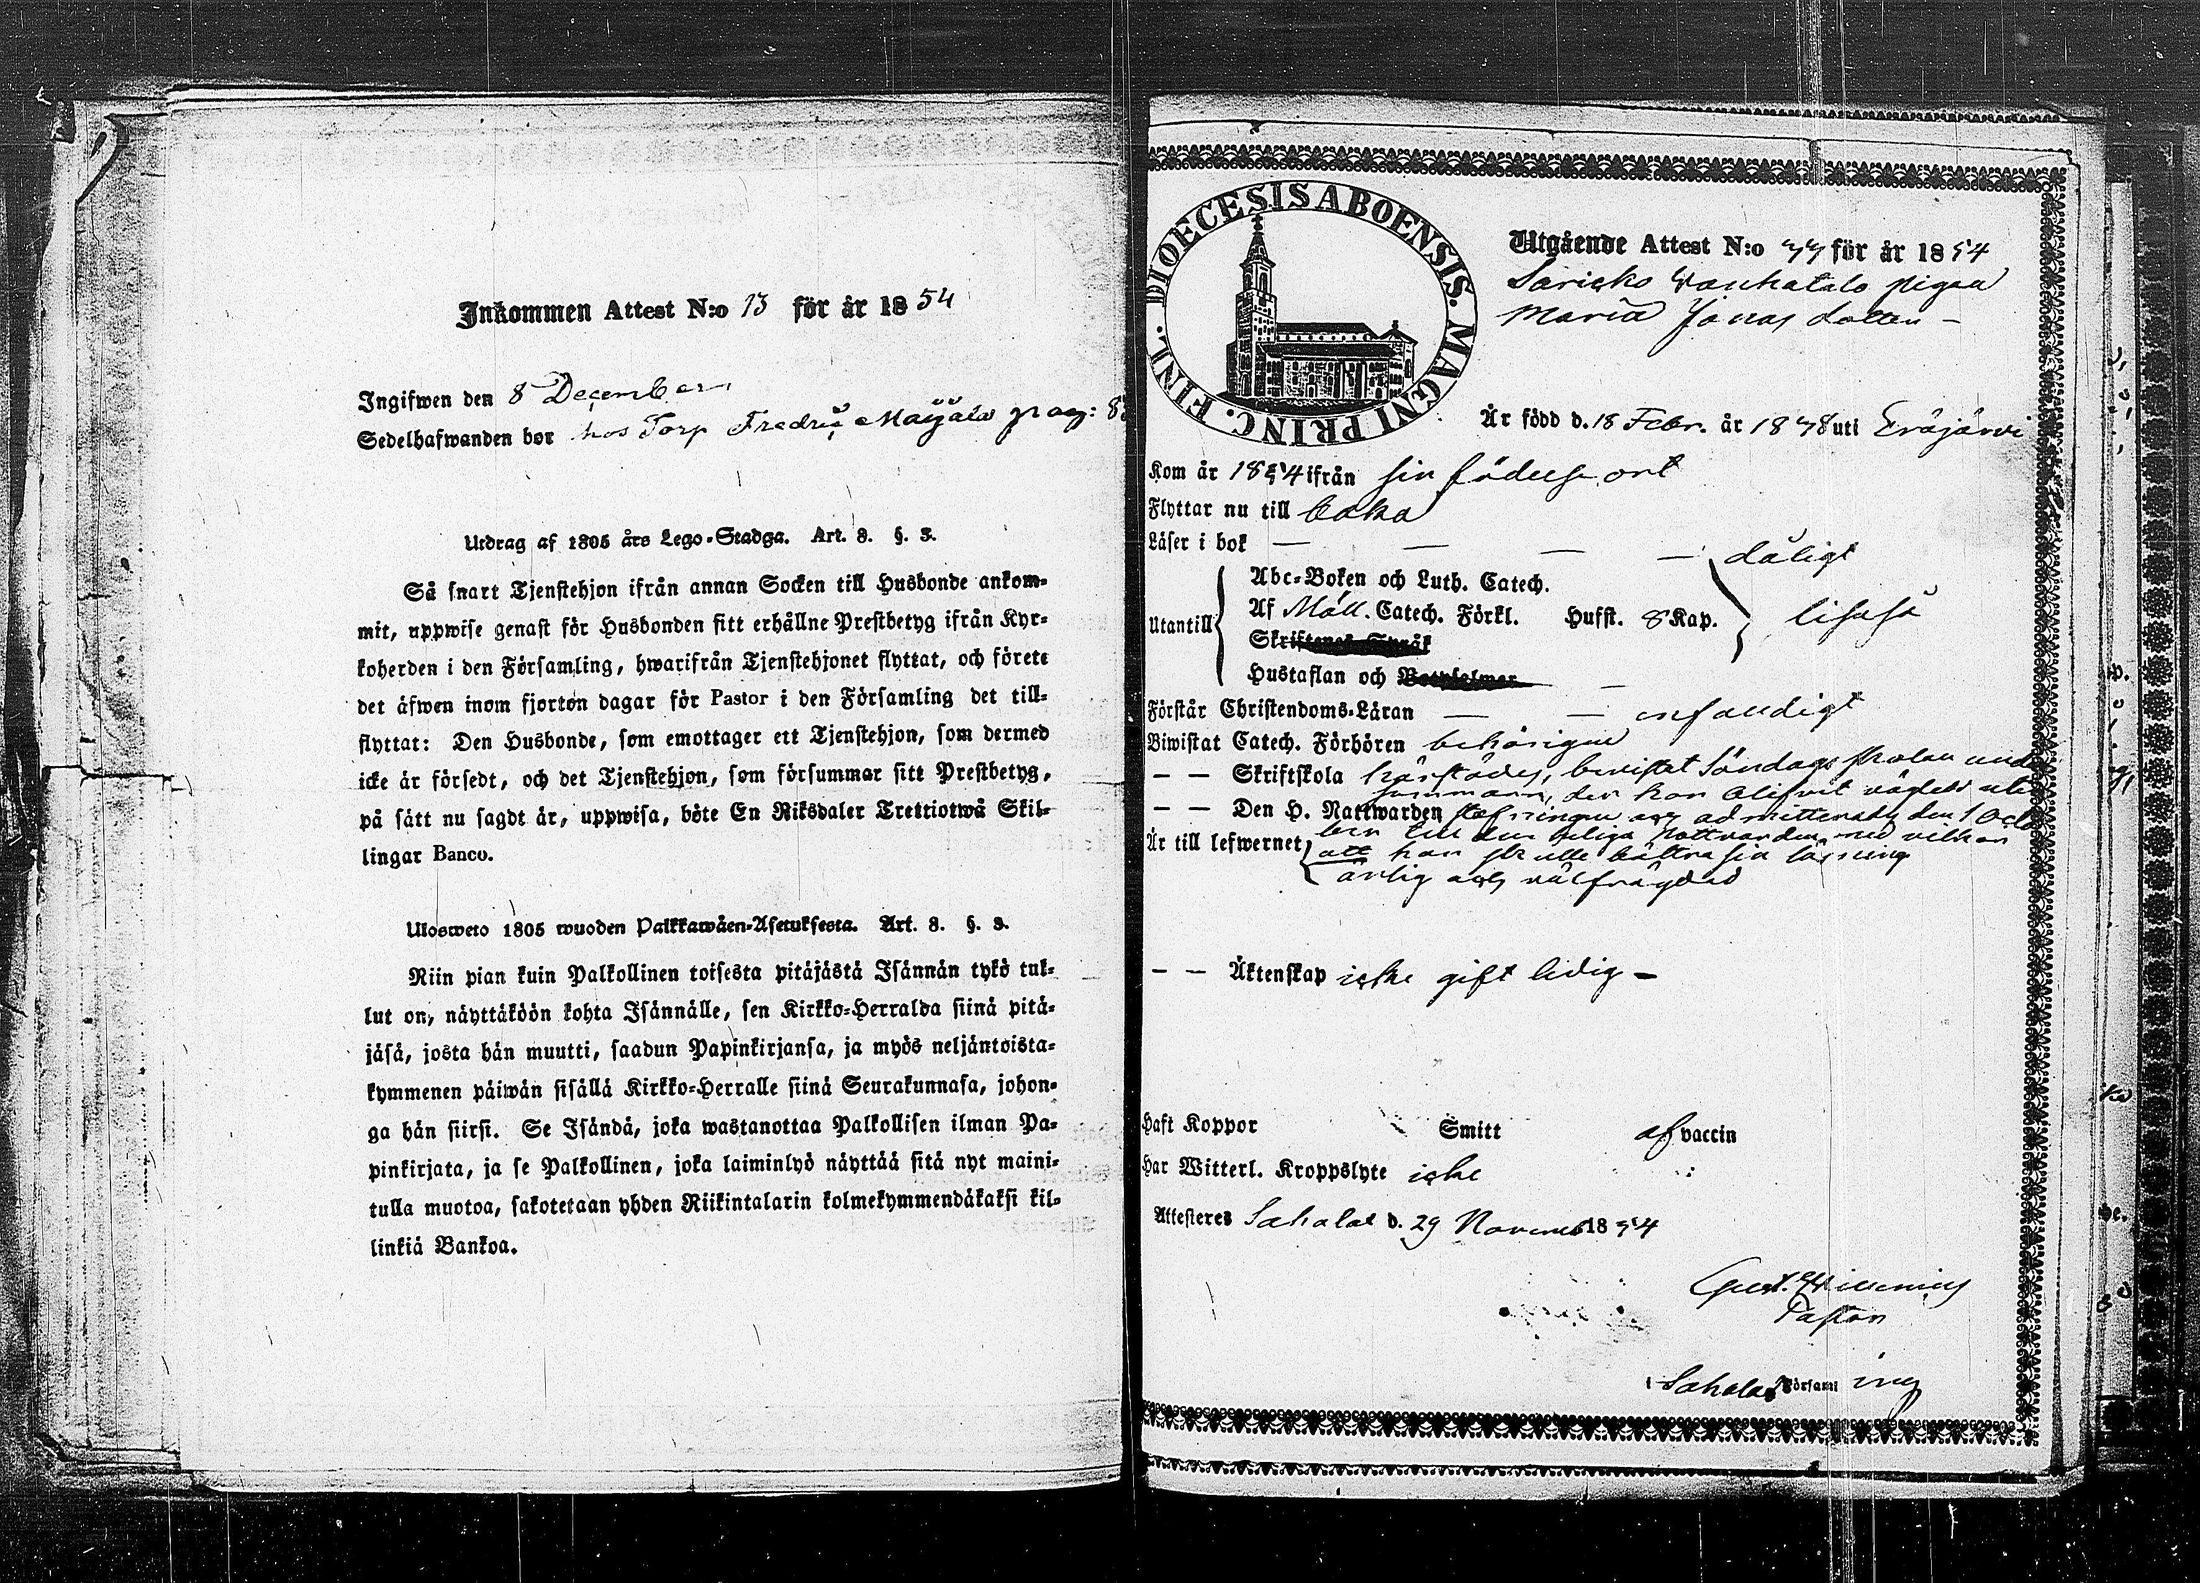 Inkommen Attest N:o 13 för år 1854
Ingifwen den 8 December
Sedelhafwanden bor hos Torp Fredric Mayala pag: 8
Utdrag af 1805 års Lego-Stadga. Art. 8. §. 3.
Så snart Tjenstehjon ifrån annan Socken till Husbonde ankom-
mit, uppwise genast för Husbonden sitt erhållne Prestbetyg ifrån Kyr-
koherden i den Församling, hwarifrån Tjenstehjonet flyttat, och förete
det äfwen inom fjorton dagar för Pastor i den Församling det till-
flyttat: Den Husbonde, som emottager ett Tjenstehjon, som dermed
icke är försedt, och det Tjenstehjon, som försummar sitt Prestbetyg,
på sätt nu sagdt är, uppwisa, böte En Riksdaler Trettiotwå Skil-
lingar Banco.
Ulosweto 1805 wuoden Palkkawäen-Asetuksesta. Art. 8. §. 3.
Niin pian kuin Palkollinen toisesta pitäjästä Isännän tykö tul-
lut on, näyttäköön kohta Isännälle, sen Kirkko-Herralda siinä pitä-
jäsä, josta hän muutti, saadun Papinkirjansa, ja myös neljäntoista-
kymmenen päiwän sisällä Kirkko-Herralle siinä Seurakunnasa, johon-
ga hän siirsi. Se Isändä, joka wastanottaa Palkollisen ilman Pa-
pinkirjata, ja se Palkollinen, joka laiminlyö näyttää sitä nyt maini-
tulla muotoa, sakotetaan yhden Riikintalarin kolmekymmendäkaksi kil-
linkiä Bankoa.
DIOECESIS ABOENSIS. MAGNI PRINC. FINL.
Utgående Attest N:o för år 1854
pigan
Maria Jonas dotter –
Är född d. 18 Febr. år uti Eräjärvi
Kom år 1854 ifrån sin födelse ort
Flyttar nu till
Läser i bok — — — — dåligt
Abc-Boken och Luth. Catech.
Utantill Af Möll. Catech. Förkl. Hufst. 8 Kap. likaså
Skriftenes Språk
Hustaflan och Botpsalmer —
Förstår Christendoms-Läran — — enfaldigt
Biwistat Catech. Förhören behörigen
— — Skriftskola bevistat Söndags skolan
— — Den H. Nattwarden admitterats den 1 Octo
ber till den heliga Nattvarden med vilkor
Är till lefwernet att hon skulle bättra sin läsning
ärlig och välfrägdad
— — Äktenskap icke gift ledig –
Haft Koppor Smitt af vaccin
Har Witterl. Kroppslyte icke
Attesteres Sahalax d. 29 Novemb 1854
Pastor
i Sahalax Församling